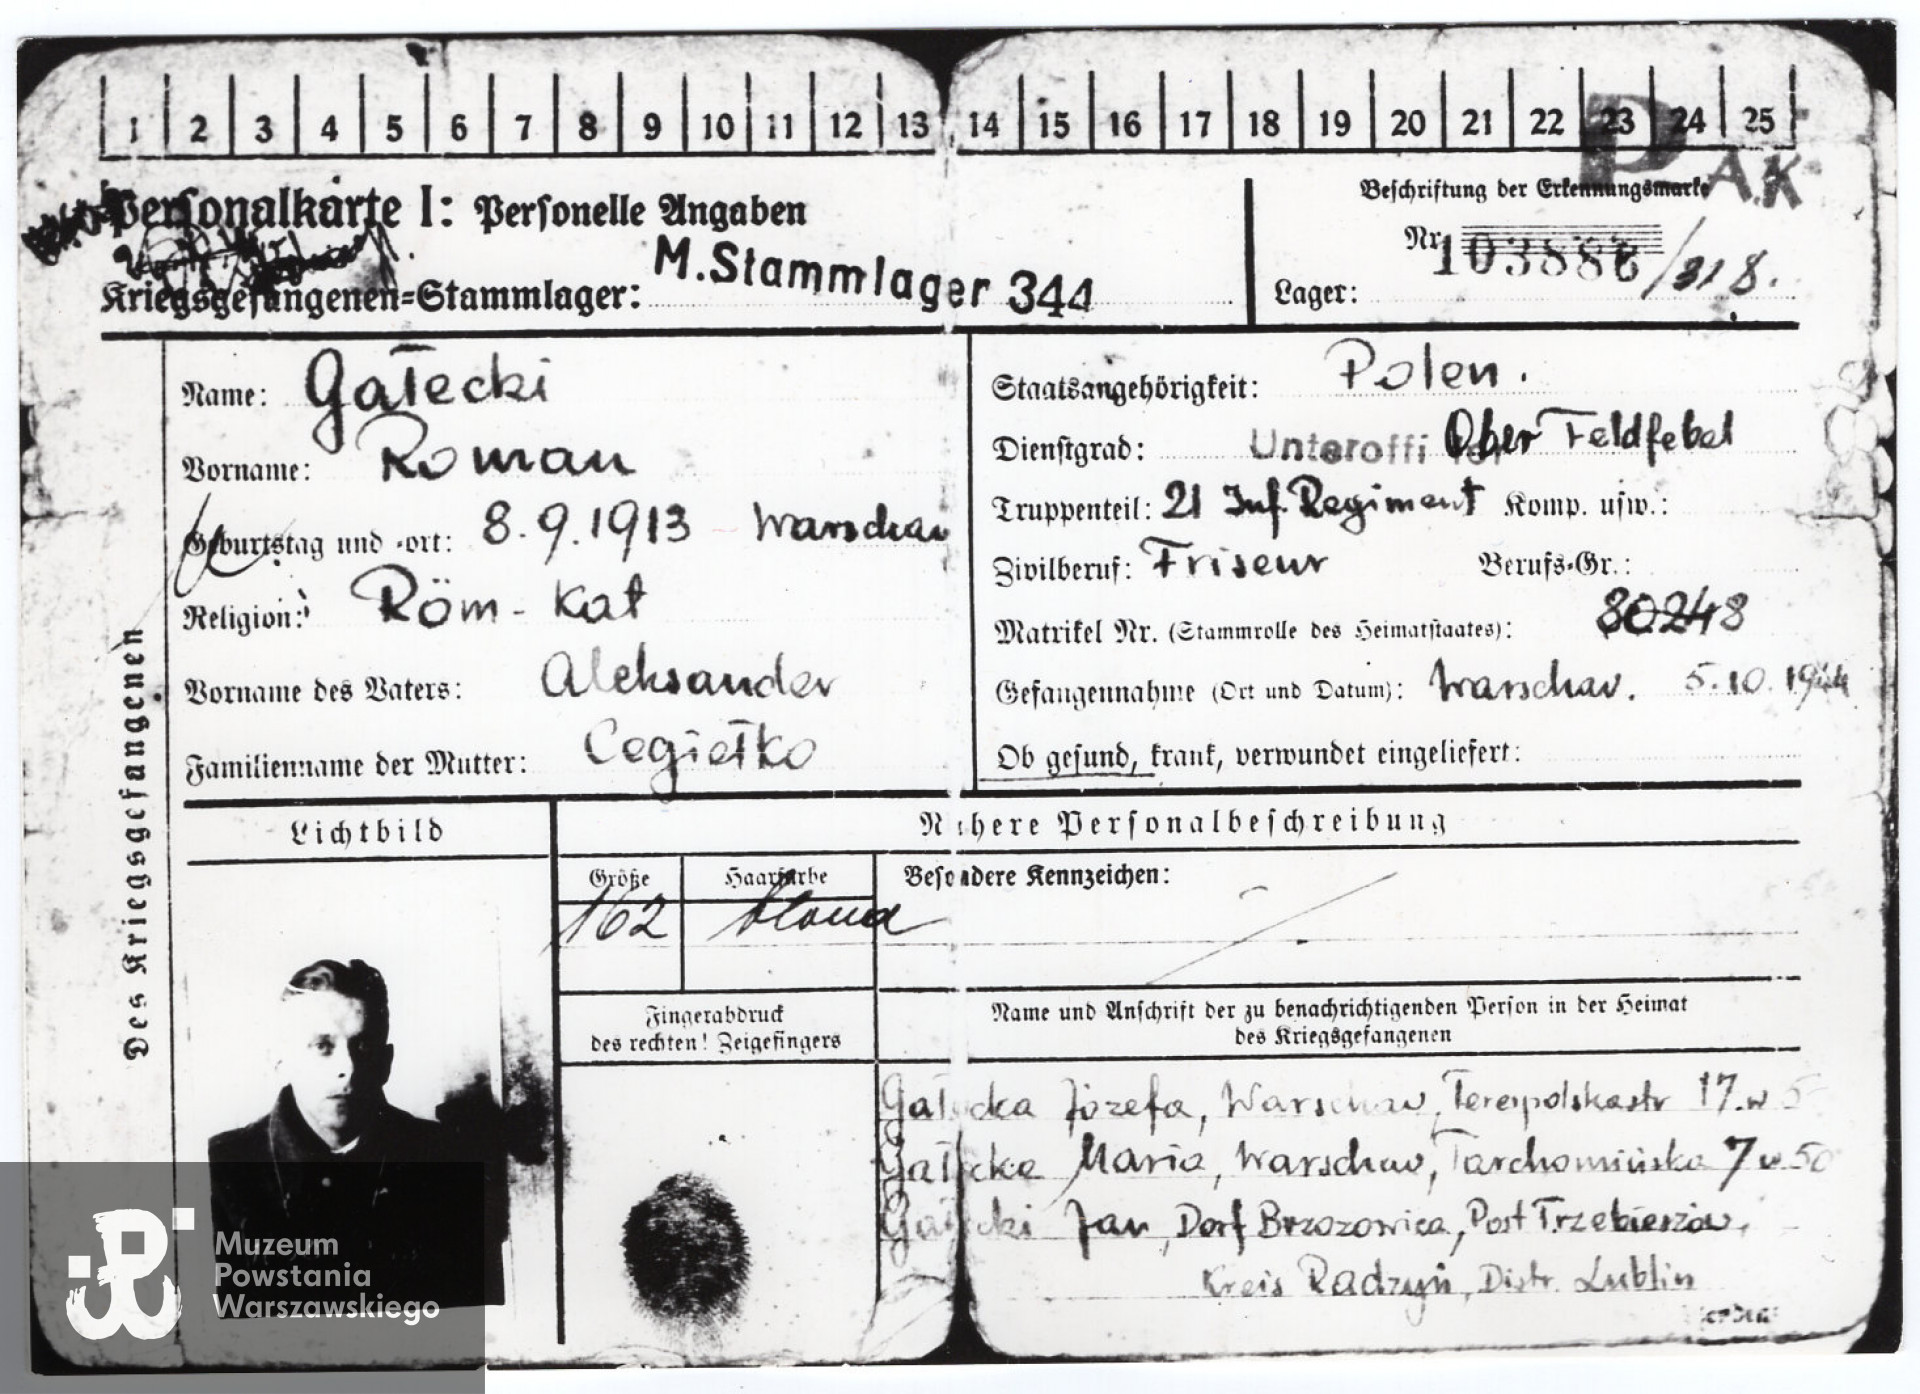 1 2 3 4 5 6 7 8 9 10 11 12 13 14 15 16 17 18 19 20 21 22 23 24 25
P AK
Personalkarte I: Personelle Angaben
Beschriftung der Erkennungsmarke
Kriegsgefangenen-Stammlager: M.Stammlager 344
Nr. 103886/318.
Lager:
Des Kriegsgefangenen
Name: Gałecki
Vorname: Roman
Geburtstag und -ort: 8.9.1913 Warschau
Religion: Röm-Kat
Vorname des Vaters: Aleksander
Familienname der Mutter: Cegiełko
Staatsangehörigkeit: Polen.
Dienstgrad: Unteroffi Ober Feldfebel
Truppenteil: 21 Inf. Regiment Komp. usw.:
Zivilberuf: Friseur Berufs-Gr.:
Matrikel Nr. (Stammrolle des Heimatstaates): 80248
Gefangennahme (Ort und Datum): Warschau. 5.10.1944
Ob gesund, krank, verwundet eingeliefert:
Lichtbild
Nähere Personalbeschreibung
Größe Haarfarbe Besondere Kennzeichen:
162 blond
Fingerabdruck
des rechten! Zeigefingers
Name und Anschrift der zu benachrichtigenden Person in der Heimat
des Kriegsgefangenen
Gałecka Józefa, Warschau, Terespolskastr 17.w 5
Gałecka Maria, Warschau, Tarchomińska 7 w 50
Gałecki Jan, Dorf Brzozowica, Post Trzebieszów,
Kreis Radzyń, Distr. Lublin
Muzeum
Powstania
Warszawskiego